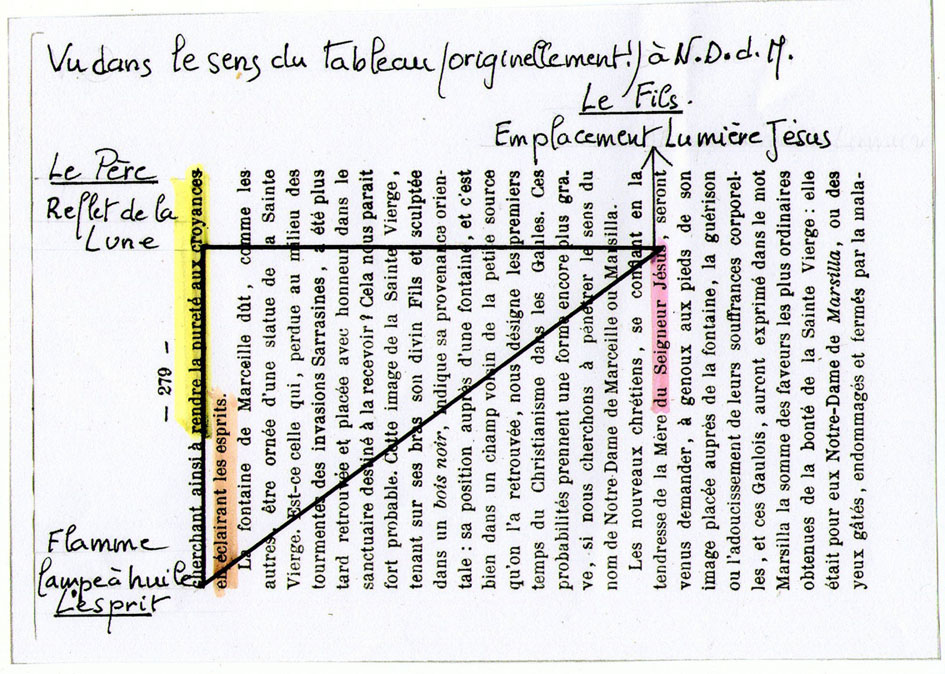 Vu dans le sens du tableau (originellement!) à N.D.d.M.
Le Fils.
Emplacement Lumière Jésus
Le Père
Reflet de la
Lune
Flamme
lampe à huile
L'esprit
— 279 —
cherchant ainsi à rendre la pureté aux croyances
en éclairant les esprits.
La fontaine de Marseille dût, comme les
autres, être ornée d'une statue de la Sainte
Vierge. Est-ce celle qui, perdue au milieu des
tourmentes des invasions Sarrasines, a été plus
tard retrouvée et placée avec honneur dans le
sanctuaire destiné à la recevoir? Cela nous parait
fort probable. Cette image de la Sainte Vierge,
tenant sur ses bras son divin Fils et sculptée
dans un bois noir, indique sa provenance orien-
tale: sa position auprès d'une fontaine, et c'est
bien dans un champ voisin de la petite source
qu'on l'a retrouvée, nous désigne les premiers
temps du Christianisme dans les Gaules. Ces
probabilités prennent une forme encore plus gra.
ve, si nous cherchons à pénétrer le sens du
nom de Notre-Dame de Marceille ou Marsilla.
Les nouveaux chrétiens, se confiant en la
tendresse de la Mère du Seigneur Jésus, seront
venus demander, à genoux aux pieds de son
image placée auprès de la fontaine, la guérison
ou l'adoucissement de leurs souffrances corporel-
les, et ces Gaulois, auront exprimé dans le mot
Marsilla la somme des faveurs les plus ordinaires
obtenues de la bonté de la Sainte Vierge: elle
était pour eux Notre-Dame de Marsilla, ou des
yeux gâtés, endommagés et fermés par la mala-